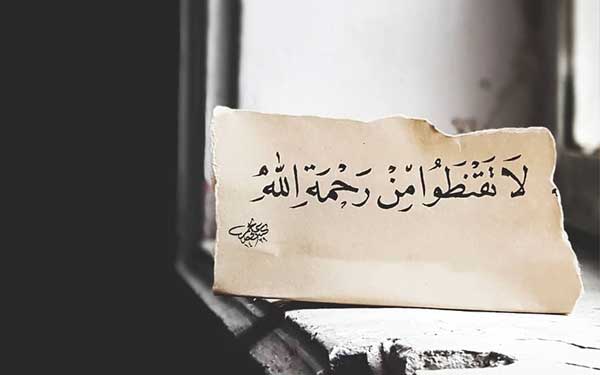 لَا تَقْنَطُوا مِنْ رَحْمَةِ اللهِ